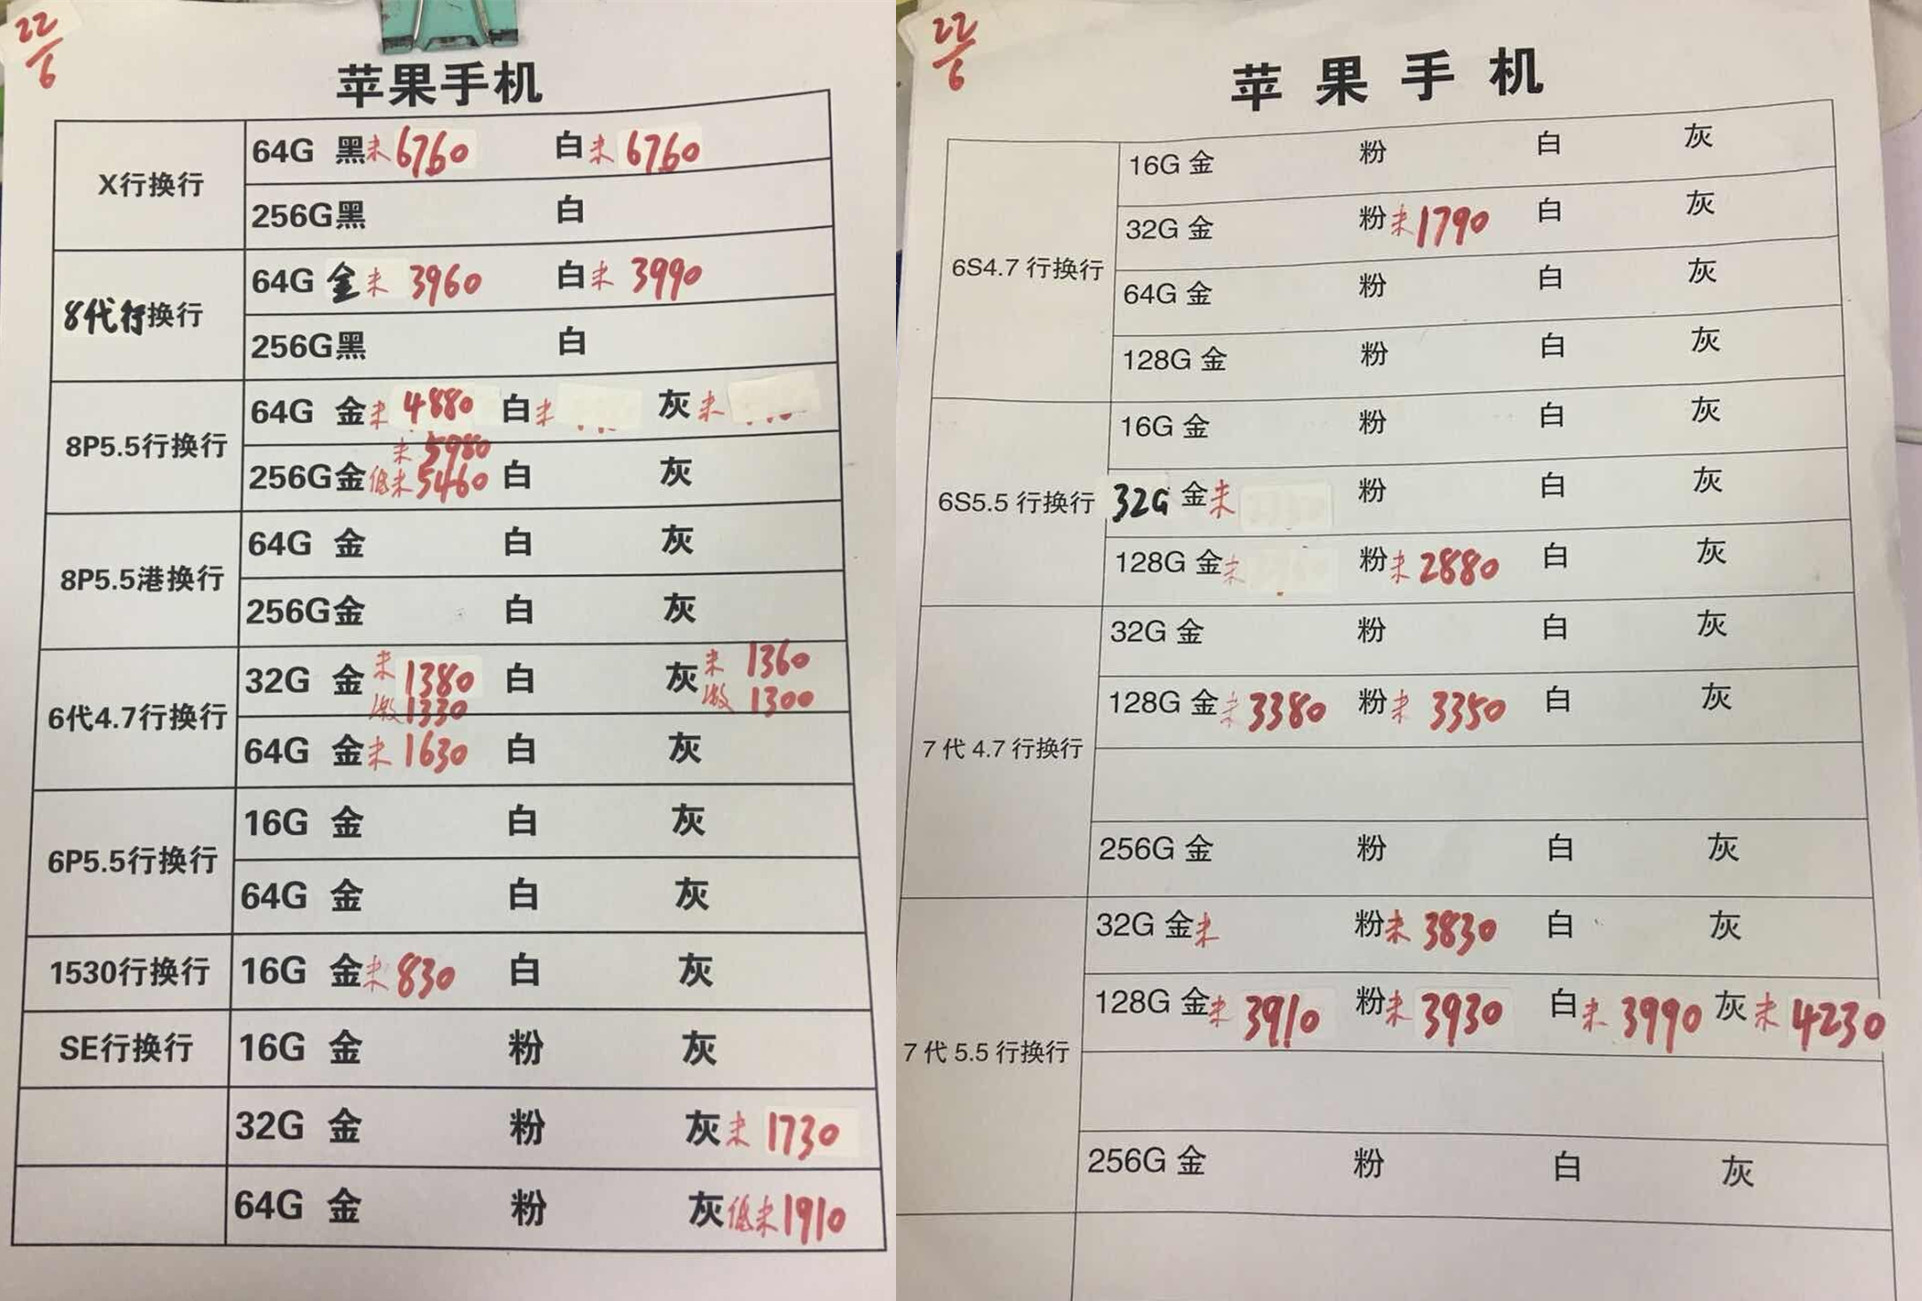 22/6
苹果手机
X行换行
64G 黑未6760 白未6760
256G黑 白
8代行换行
64G 金未3960 白未3990
256G黑 白
8P5.5行换行
64G 金未4880 白未 灰未
未5980
256G金低未5460 白 灰
8P5.5港换行
64G 金 白 灰
256G金 白 灰
6代4.7行换行
32G 金未1380 白 灰未1360
激1330 激1300
64G 金未1630 白 灰
6P5.5行换行
16G 金 白 灰
64G 金 白 灰
1530行换行
16G 金未830 白 灰
SE行换行
16G 金 粉 灰
32G 金 粉 灰未1730
64G 金 粉 灰低未1910
22/6
苹果手机
6S4.7行换行
16G 金 粉 白 灰
32G 金 粉未1790 白 灰
64G 金 粉 白 灰
128G 金 粉 白 灰
6S5.5行换行
16G 金 粉 白 灰
32G 金未 粉 白 灰
128G 金未 粉未2880 白 灰
7代4.7行换行
32G 金 粉 白 灰
128G 金未3380 粉未3350 白 灰
256G 金 粉 白 灰
7代5.5行换行
32G 金未 粉未3830 白 灰
128G 金未3910 粉未3930 白未3990 灰未4230
256G 金 粉 白 灰